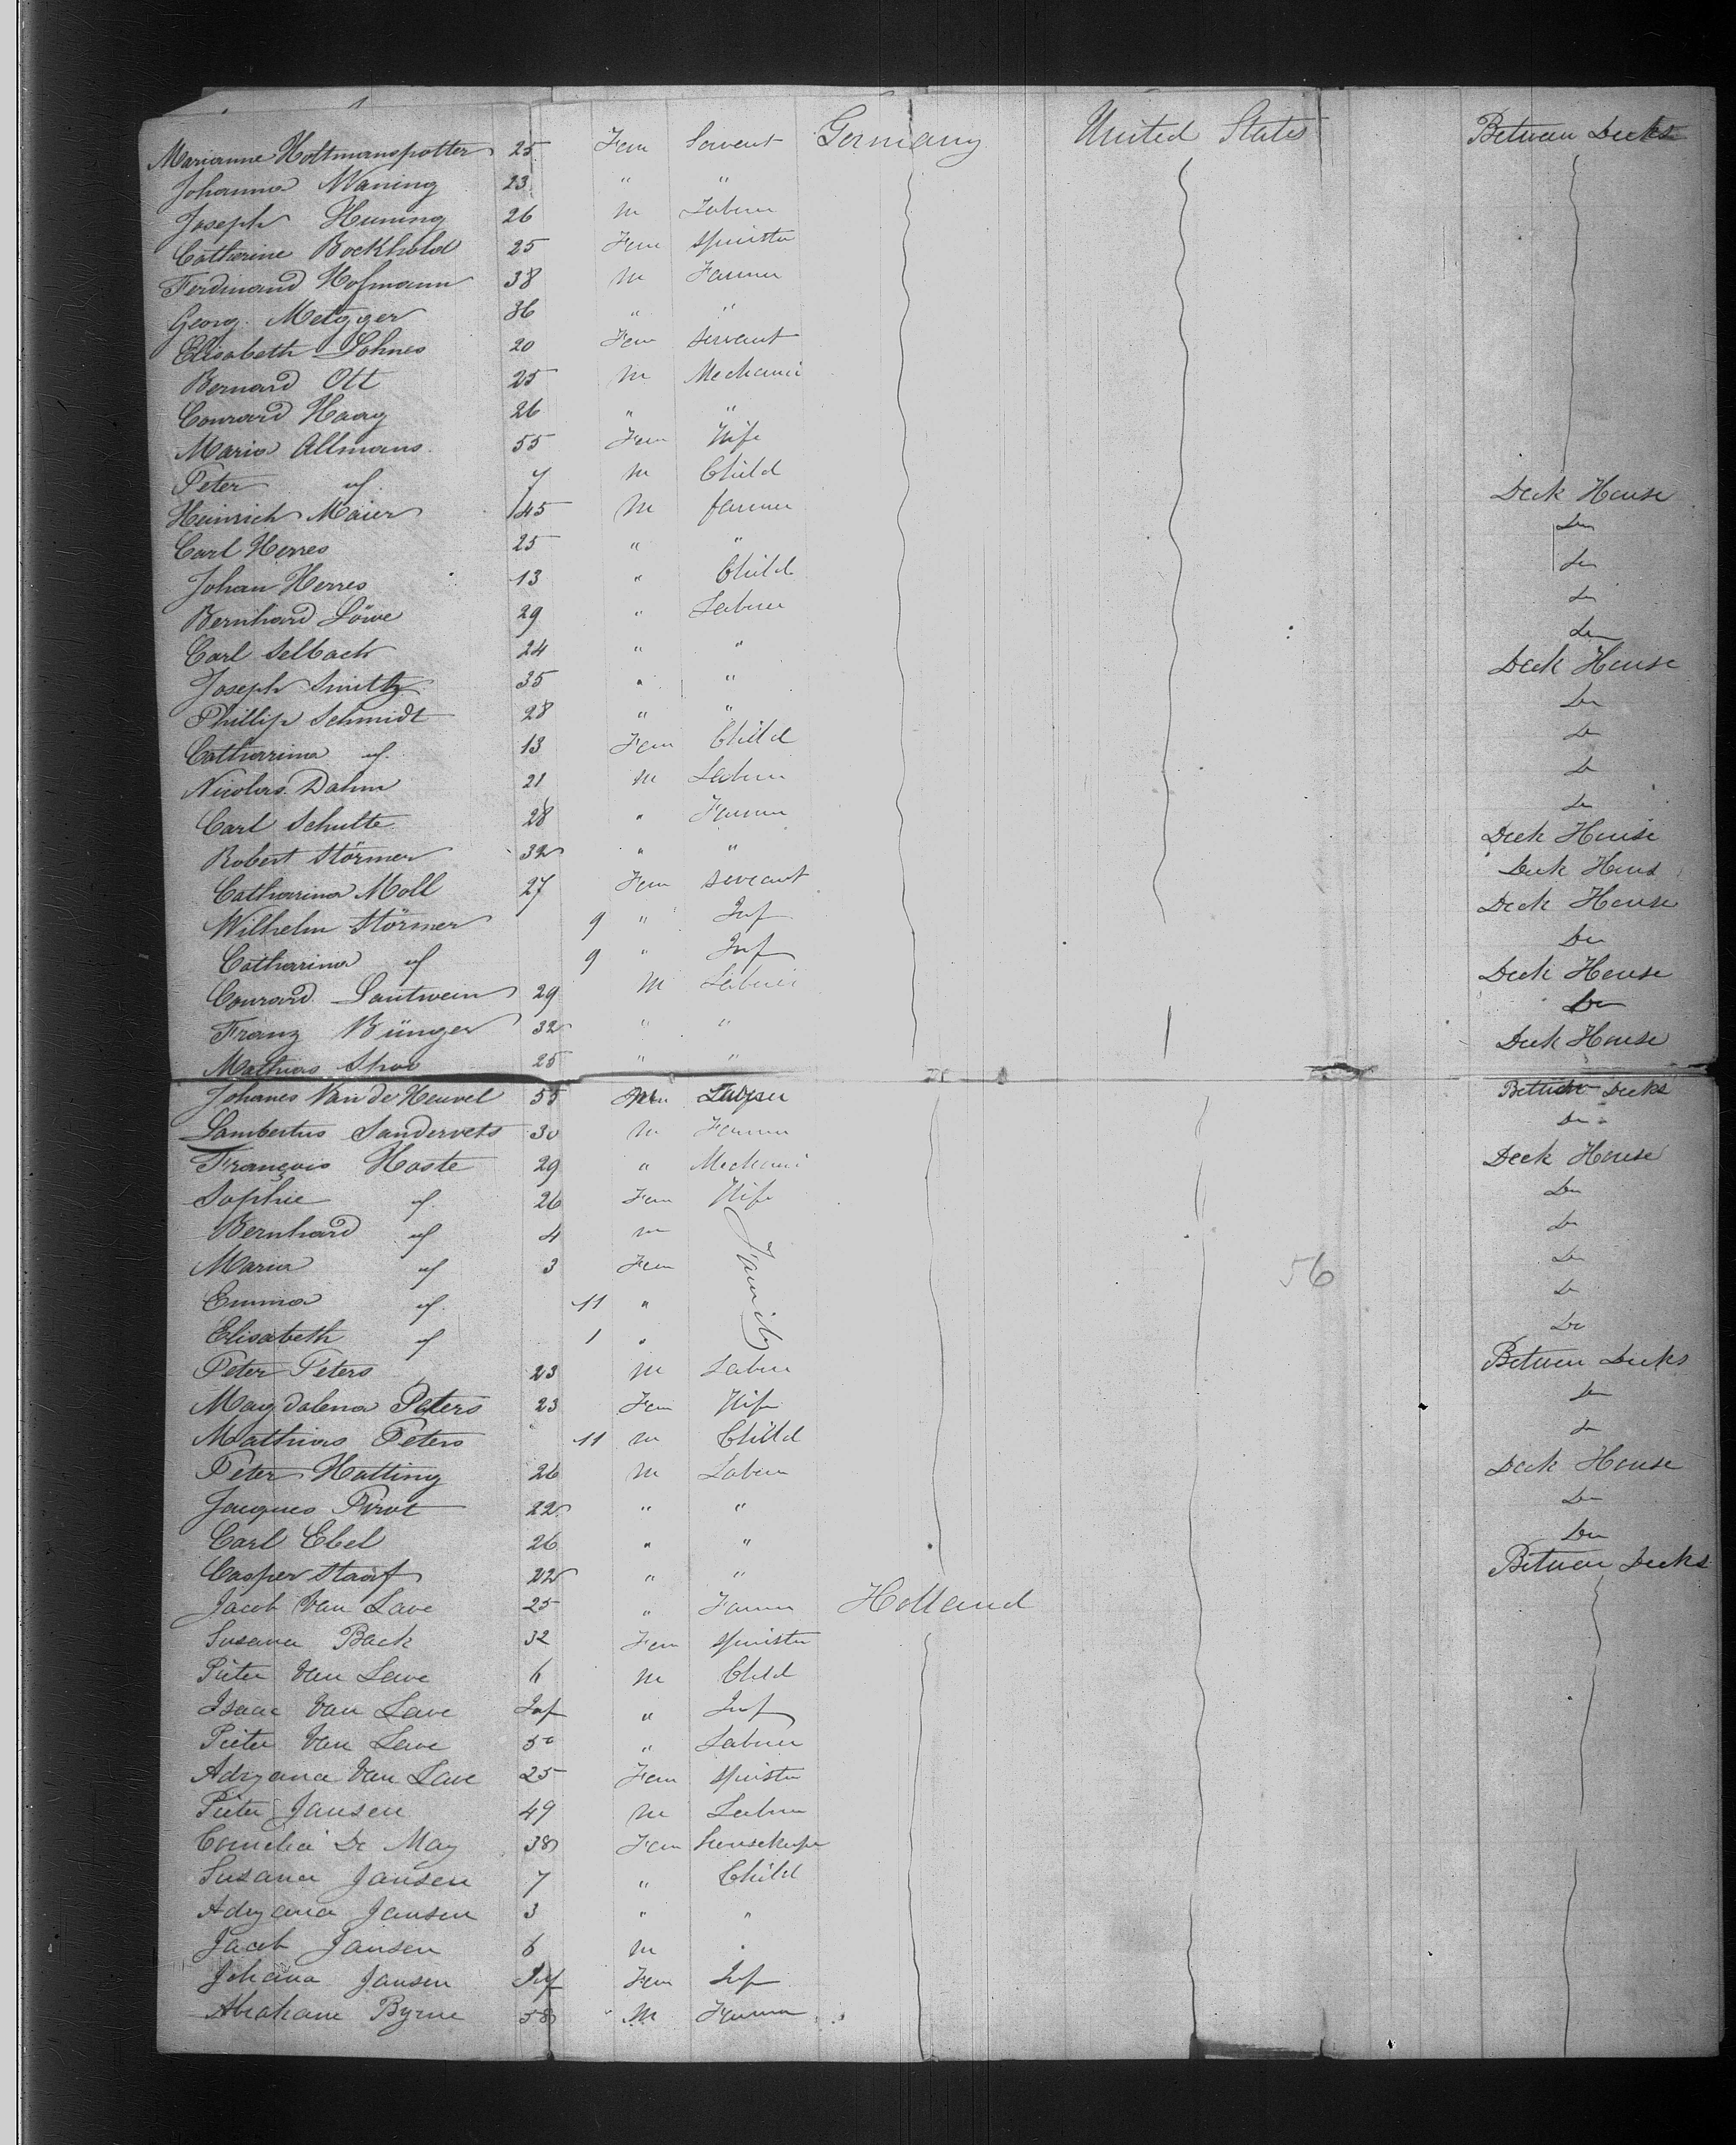 Marianne Holtmanspotter 25 Fem Servent Germany United States Between Decks
Johanna Waning 23 " "
Joseph Huning 26 M Labrer
Catherine Bockhold 25 Fem Spinster
Ferdinand Hofmann 38 M Farmer
Georg Metzger 36 " "
Elisabeth Lohnes 20 Fem Servant
Bernard Ott 25 M Mechanic
Conrard Haag 26 " "
Maria Allmans 55 Fem Wife
Peter " 7 M Child Deck House
Heinrich Maier 45 M farmer Do
Carl Herres 25 " " Do
Johan Herres 13 " Child Do
Bernhard Löwe 29 " Labrer Do
Carl Selbach 24 " " Deck House
Joseph Smitz 35 " " Do
Phillip Schmidt 28 " " Do
Catharina " 13 Fem Child Do
Nicolas Dahm 21 M Labrer Do
Carl Schulte 28 " Farmer Deck House
Robert Störmer 32 " " Deck House
Catharina Moll 27 Fem Servant Deck House
Wilhelm Störmer 9 " Inf Do
Catharina " 9 " Inf Deck House
Conrard Lautwein 29 M Labrer Do
Franz Bünger 32 " " Deck House
Mathias 25 " "
Johanes Van de Heuvel 55 M Labrer Between Decks
Lambertus Sandervets 30 M Farmer Do
François Haste 29 " Mechanic Deck House
Sophie " 26 Fem Wife Do
Bernhard " 4 M Family Do
Maria " 3 Fem Do
56
Emma " 11 " Do
Elisabeth " 1 " Do
Peter Peters 23 M Labrer Between Decks
Magdalena Peters 23 Fem Wife Do
Mathias Peters 11 M Child Do
Peter Hatting 26 M Labrer Deck House
Jacques Pirot 22 " " Do
Carl Ebel 26 " " Do
Casper Staaf 22 " " Between Decks
Jacob Van Lave 25 " Farmer Holland
Susana Back 32 Fem Spinster
Pieter Van Lave 6 M Child
Isaac Van Lave Inf " Inf
Pieter Van Lave 50 " Labrer
Adryana Van Lave 25 Fem Spinster
Pieter Jansen 49 M Labrer
Cornelia De May 38 Fem Housekeeper
Susana Jansen 7 " Child
Adryana Jansen 3 " "
Jacob Jansen 6 M "
Johana Jansen Inf Fem Inf
Abraham Byrne 58 M Farmer